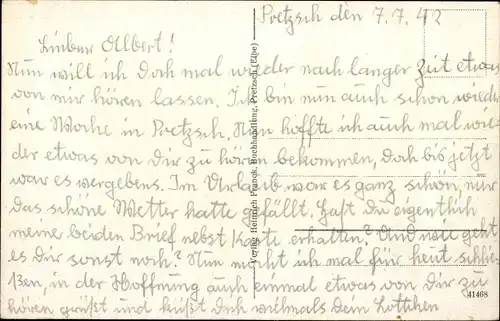 Pretzsch den 7.7.42
Lieber Albert!
Nun will ich doch mal wieder nach langer Zeit etwas
von mir hören lassen. Ich bin nun auch schon wieder
eine Woche in Pretzsch. Nun hoffte ich auch mal wie
der etwas von Dir zu hören bekommen, doch bis jetzt
war es vergebens. Im Urlaub war es ganz schön, nur
das schöne Wetter hatte gefällt. Hast du eigentlich
meine beiden Brief nebst Karte erhalten? Und wie geht
es dir sonst noch? Nun möcht ich mal für heut schlie
ßen, in der Hoffnung auch einmal etwas von Dir zu
hören grüßt und küßt Dich vielmals Dein Lottchen
Verlag Heinrich Franck, Buchhandlung, Pretzsch (Elbe)
41468